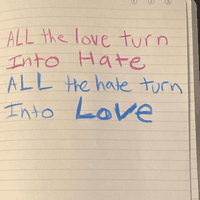 ALL the love turn
Into Hate
ALL the hate turn
Into Love